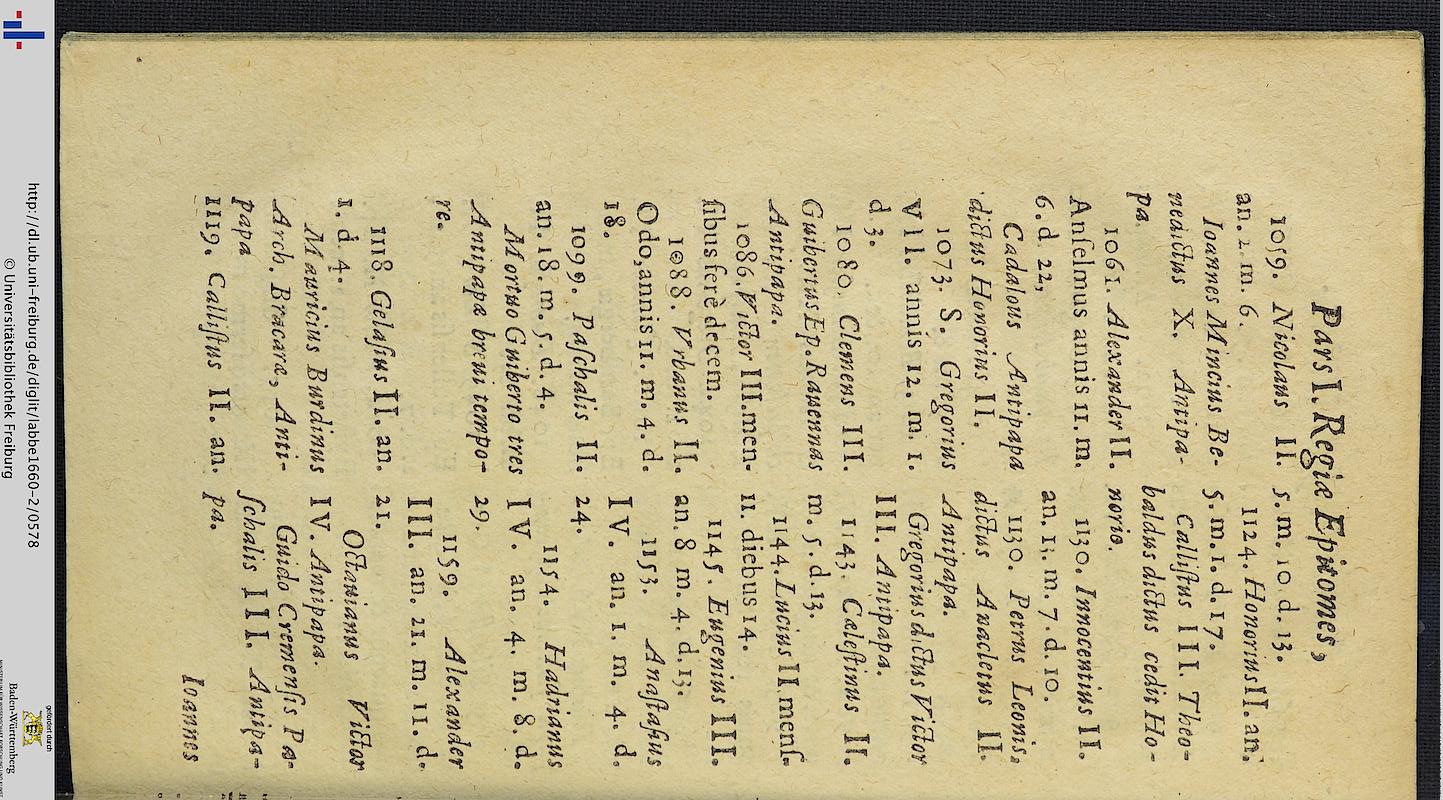 Pars I. Regiæ Epitomes,
1059. Nicolaus II.
an. 2. m. 6.
Ioannes Mincius Be-
nedictus X. Antipa-
pa.
1061. Alexander II.
Anſelmus annis 11. m.
6. d. 22,
Cadalous Antipapa
dictus Honorius II.
1073. S. Gregorius
VII. annis 12. m. 1.
d 3.
1080. Clemens III.
Guibertus Ep. Rauennas
Antipapa.
1086. Victor III. men-
ſibus ferè decem.
1088. Vrbanus II.
Odo, annis 11. m. 4. d.
18.
1099. Paſchalis II.
an. 18. m. 5. d. 4.
Mortuo Guiberto tres
Antipapæ breui tempo-
re.
1118. Gelaſius II. an.
1. d 4.
Mauricius Burdinus
Arch. Bracarę, Anti-
papa
1119. Calliſtus II. an.
5. m. 10. d. 13.
1124. Honorius II. an.
5. m. 1. d. 17.
Calliſtus III. Theo-
baldus dictus cedit Ho-
norio.
1130. Innocentius II.
an. 13. m. 7. d. 10.
1130. Petrus Leonis,
dictus Anacletus II.
Antipapa.
Gregorius dictus Victor
III. Antipapa.
1143. Cæleſtinus II.
m. 5. d 13.
1144. Lucius II. menſ.
11. diebus 14.
1145. Eugenius III.
an. 8 m. 4. d. 13.
1153. Anaſtaſius
IV. an. 1. m. 4. d.
24.
1154. Hadrianus
IV. an. 4. m. 8. d.
29.
1159. Alexander
III. an. 21. m. 11. d.
21.
Octauianus Victor
IV. Antipapa.
Guido Cremenſis Pa-
ſchalis III. Antipa-
pa.
Ioannes
http://dl.ub.uni-freiburg.de/diglit/labbe1660-2/0578
© Universitätsbibliothek Freiburg
gefördert durch
Baden-Württemberg